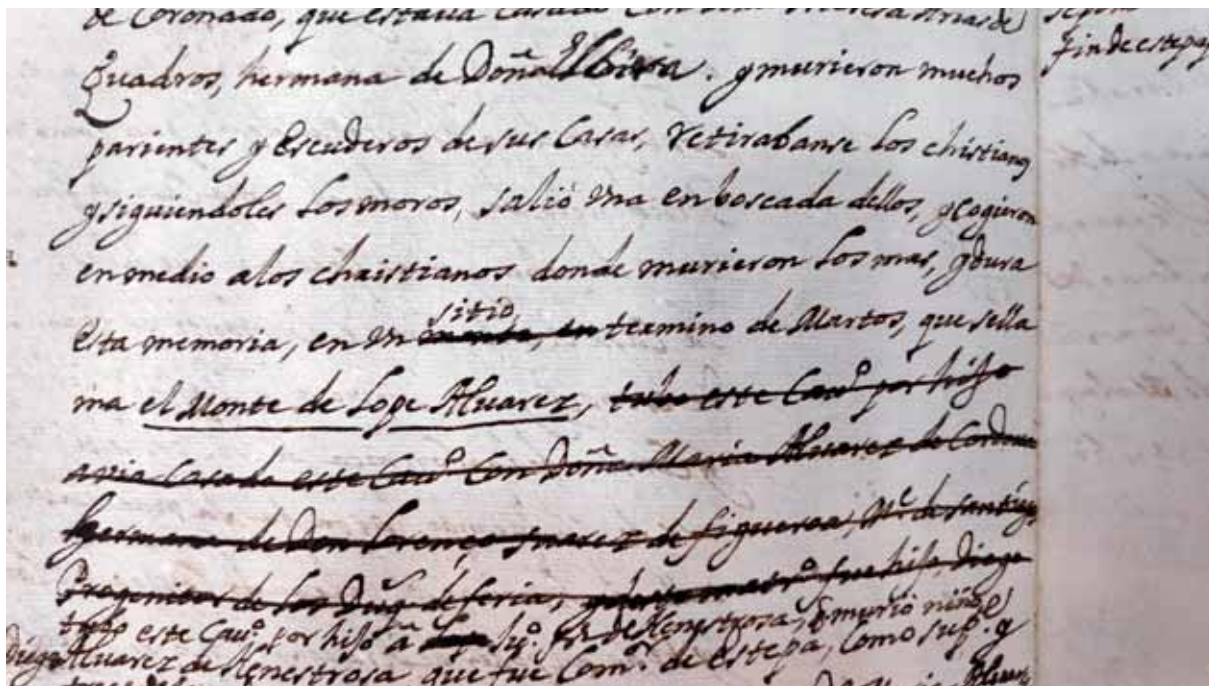 de Coronado, que estava casado con Doña Theresa Arias de
Quadros, hermana de Doña Elvira. y murieron muchos
parientes y Escuderos de sus Casas, retirabanse los chistianos
y siguiendoles los moros, salió vna enboscada dellos, y cogieron
en medio a los chaistianos donde murieron los mas, y dura
Esta memoria, en vn sitio, termino de Martos, que se lla
ma el Monte de Lope Alvarez, tubo este Cauº por hijo
avia Casado este Cauº Con Doña Maria Alvarez de Cordova
hermana de Don Lorenço Suarez de figueroa, Mᵉ de Santiago
Progenitor de los Duqˢ de feria, fue hijo Diego
tubo este Cauº por hijo a de Henestrosa, murió niño
Diego Alvarez de Henestrosa, que fue Comᵒʳ de estepa, Como su pᵉ y
fin de estepa